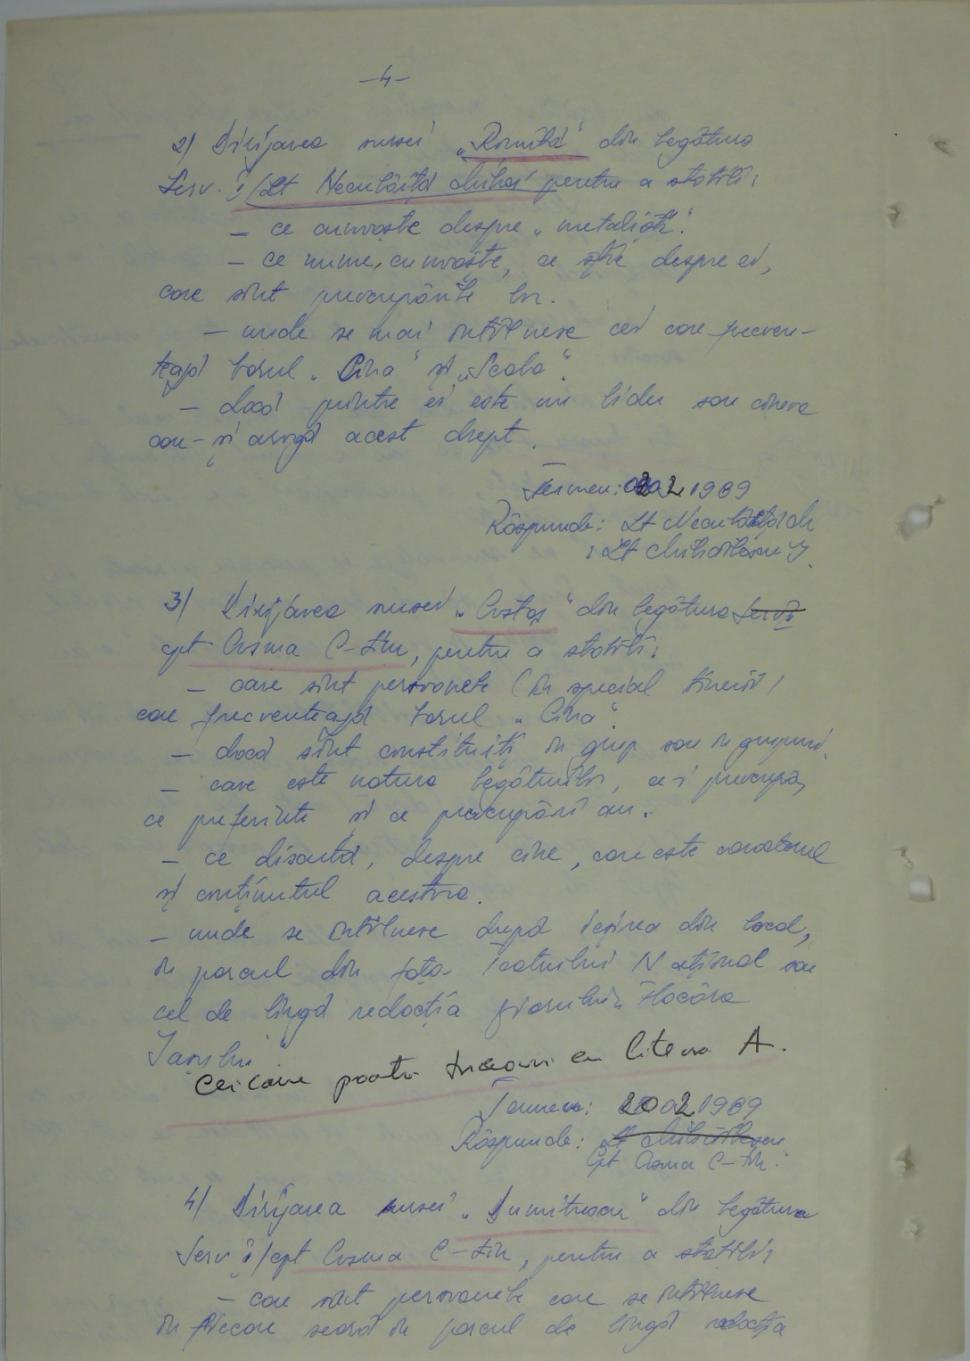 -4-
2/ Dirijarea sursei „Romită" din legătura
Serv. i/Lt Neculăiță Mihai pentru a stabili:
- ce cunoaște despre „metaliști".
- ce nume cunoaște, ce știe despre ei,
care sînt preocupările lor.
- unde se mai întîlnesc cei care frecven-
tează barul „Cina" și „Scala".
- dacă printre ei este un lider sau cineva
care-și arogă acest drept.
Termen: 02 1989
Răspunde: Lt
Lt
3/ Dirijarea sursei „Costaș" din legătura Serv. i
cpt Cosma C-tin, pentru a stabili:
- care sînt persoanele (în special tineri)
care frecventează barul „Cina".
- dacă sînt constituiți în grup sau în grupuri.
- care este natura legăturilor, ce-i preocupă,
ce preferințe și ce preocupări au.
- ce discută, despre cine, care este caracterul
și conținutul acestora.
- unde se întîlnesc după ieșirea din local,
în parcul din fața Teatrului Național sau
cel de lîngă redacția ziarului „Flacăra
Iașului".
cei care poartă tricouri cu litera A.
Termen: 20 02 1989
Răspunde: Lt
Cpt Cosma C-tin.
4/ Dirijarea sursei „Dumitrescu" din legătura
Serv i/cpt Cosma C-tin, pentru a stabili:
- care sînt persoanele care se întîlnesc
în fiecare seară în parcul de lîngă redacția